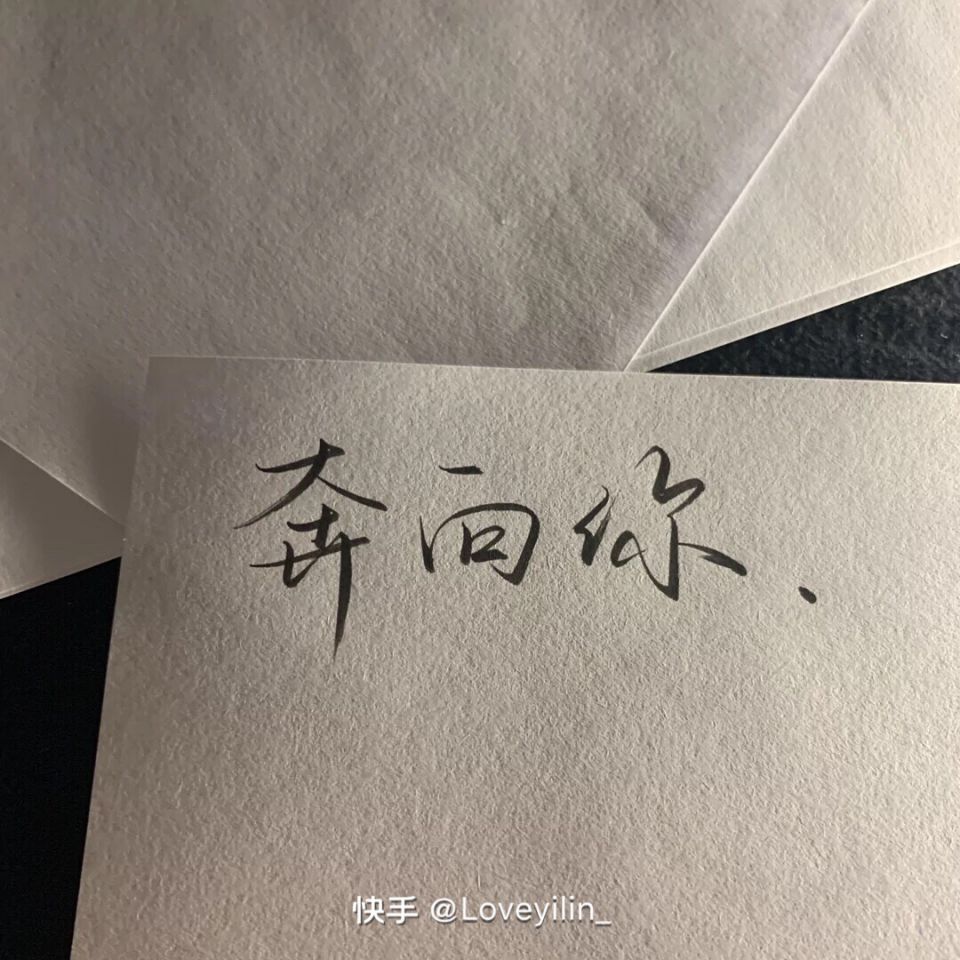 奔向你.
快手 @Loveyilin_